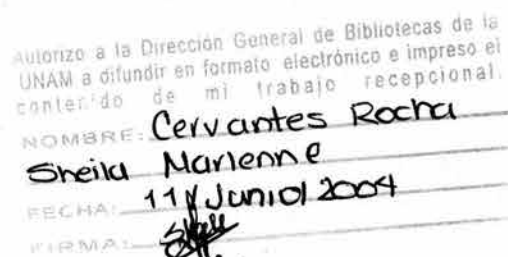 Autorizo a la Dirección General de Bibliotecas de la
UNAM a difundir en formato electrónico e impreso el
contenido de mi trabajo recepcional.
NOMBRE: Cervantes Rocha
Sheila Marlenne
FECHA: 11/Junio/2004
FIRMA: